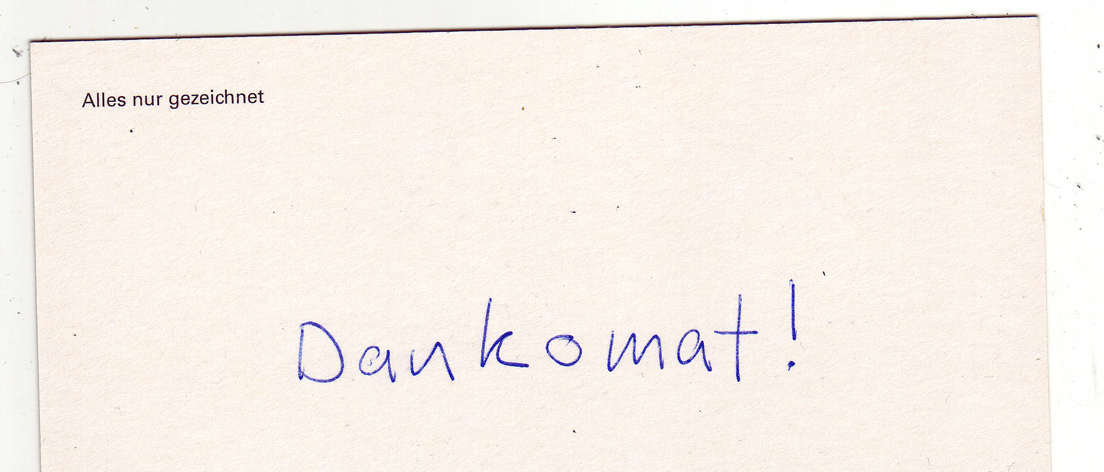 Alles nur gezeichnet
Dankomat!